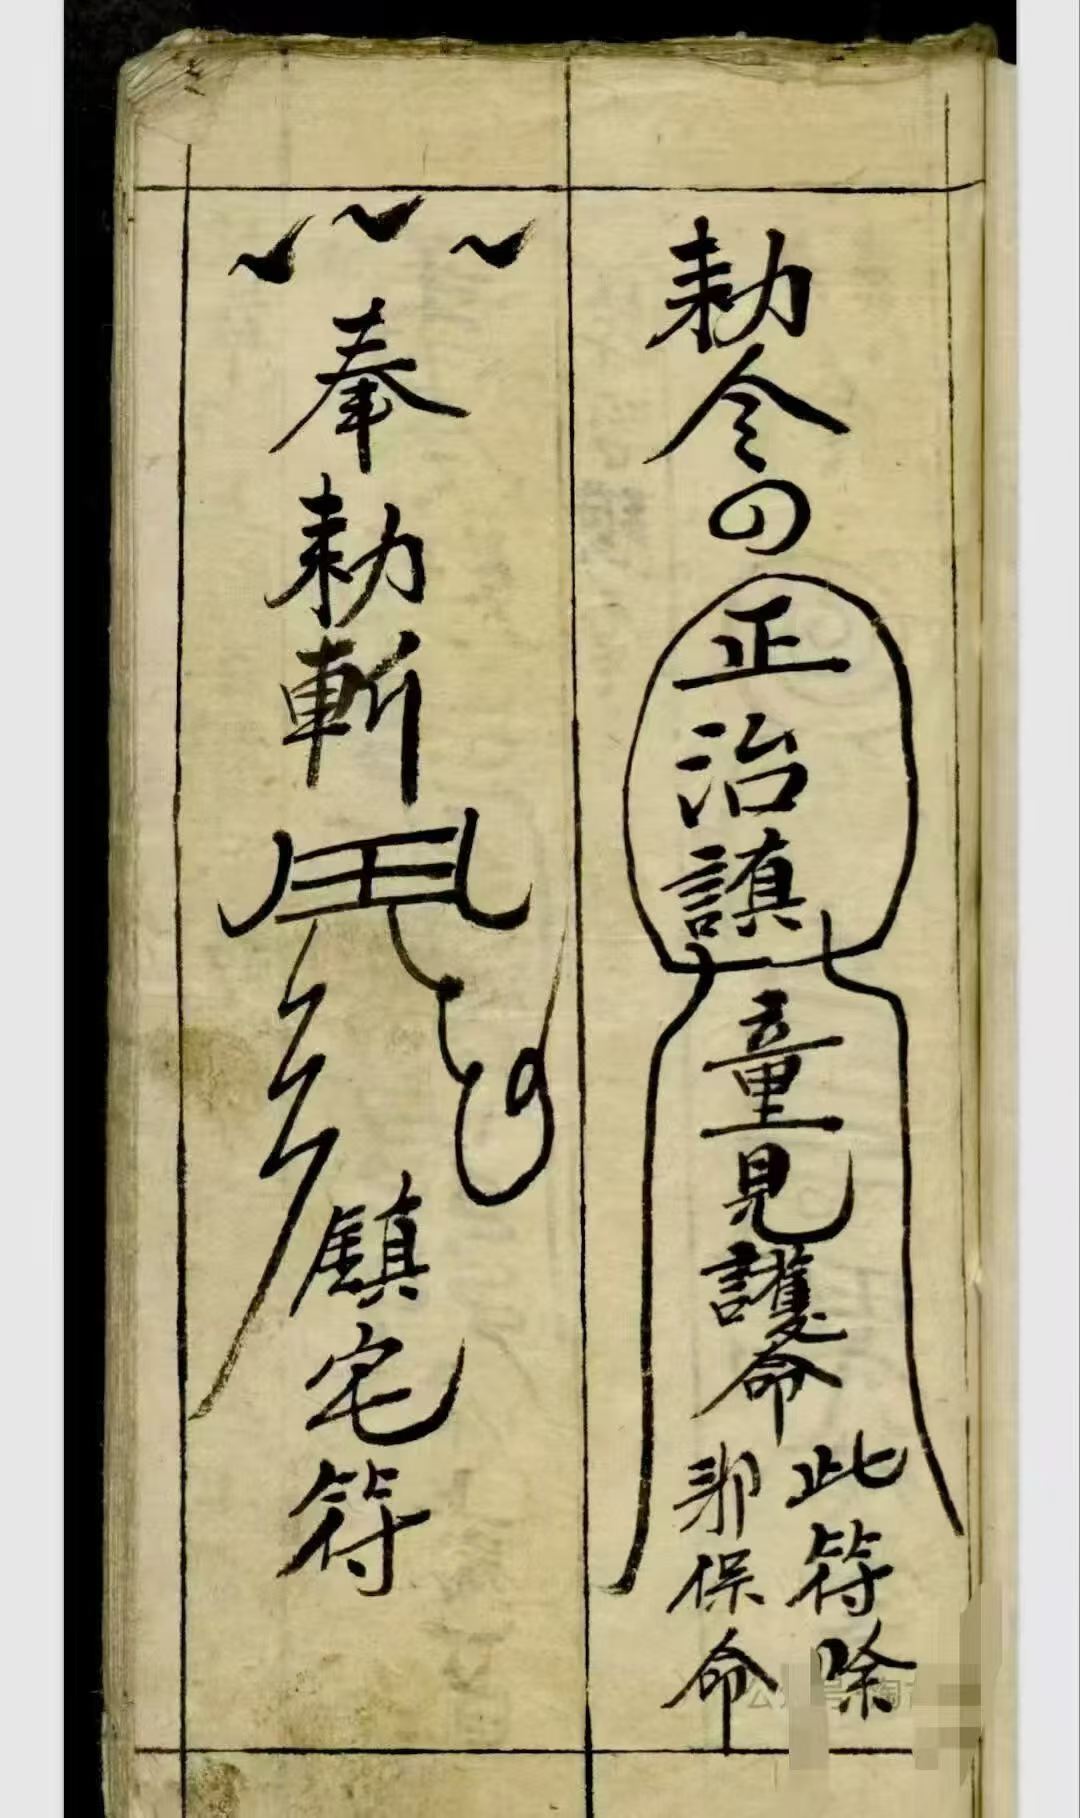 勅令
正治謓
童見護命
此符除
邪保命
奉勅斬
鎮宅符